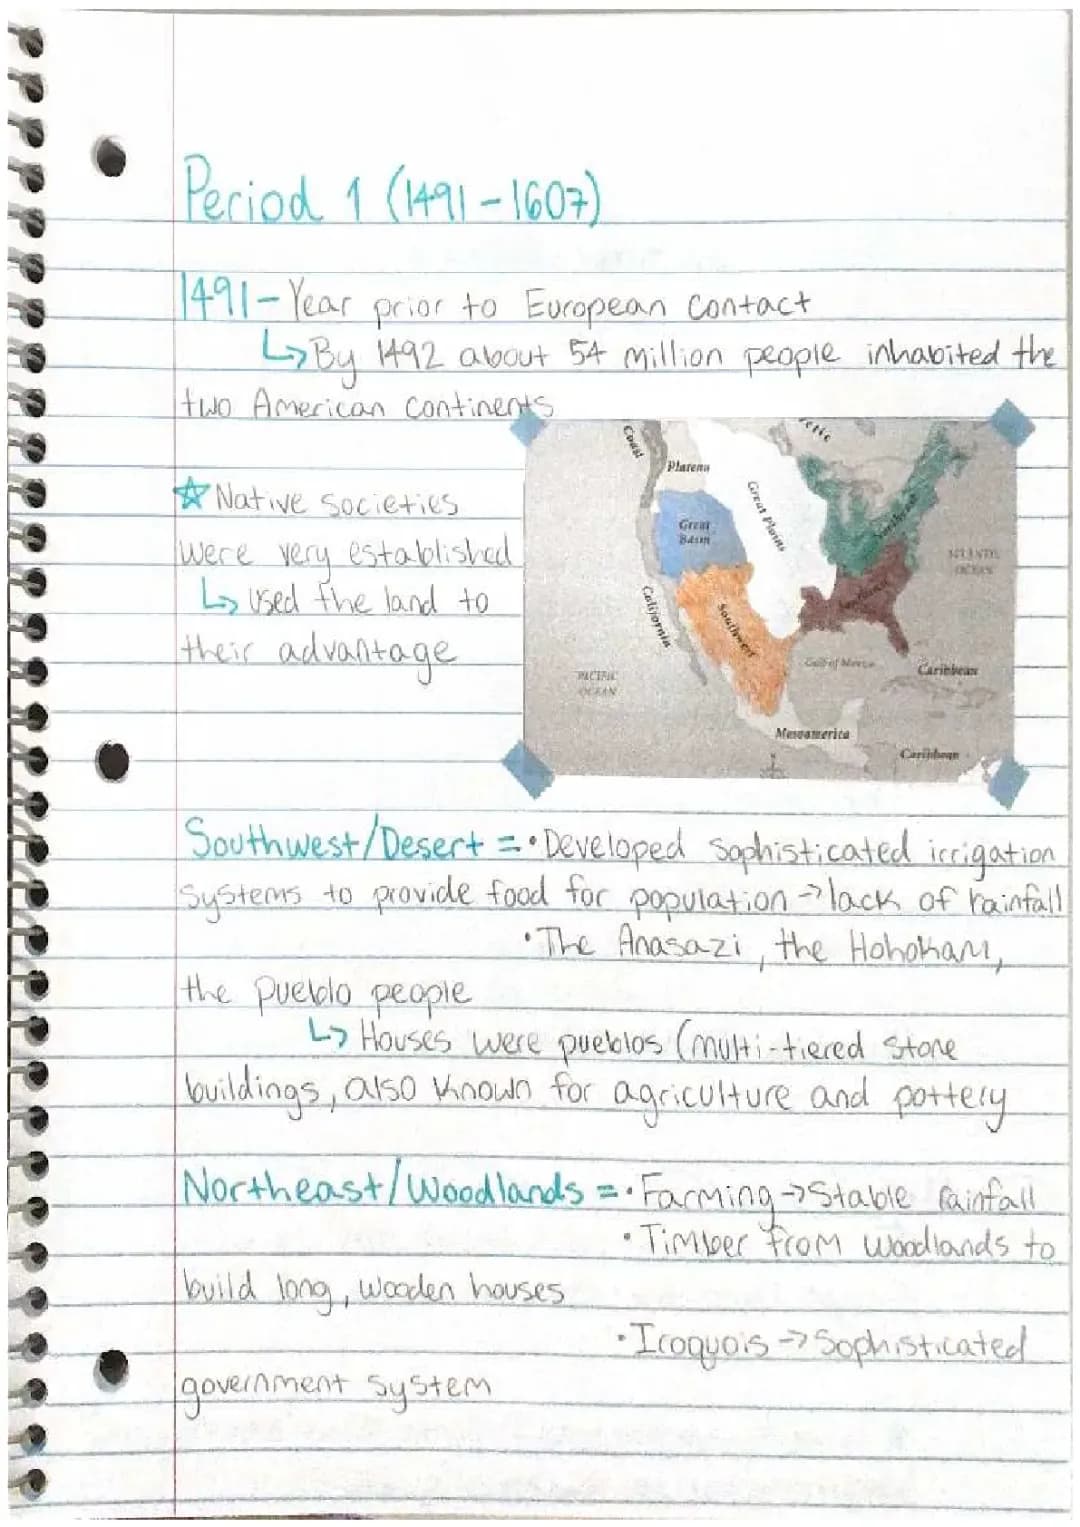 Period 1 (1491-1607)
1491- Year prior to European Contact
↳ By 1492 about 54 million people inhabited the
two American continents
☆ Native societies
were very established
↳ Used the land to
their advantage
Coast
Plateau
Great Plains
Great
Basin
Northeast
ATLANTIC
OCEAN
California
Southwest
Southeast
PACIFIC
OCEAN
Gulf of Mexico
Caribbean
Mesoamerica
Caribbean
Southwest/Desert = • Developed sophisticated irrigation
systems to provide food for population → lack of rainfall
• The Anasazi, the Hohokam,
the pueblo people
↳ Houses were pueblos (multi-tiered stone
buildings, also known for agriculture and pottery
Northeast/Woodlands = • Farming → Stable rainfall
• Timber from woodlands to
build long, wooden houses
• Iroquois → Sophisticated
government system